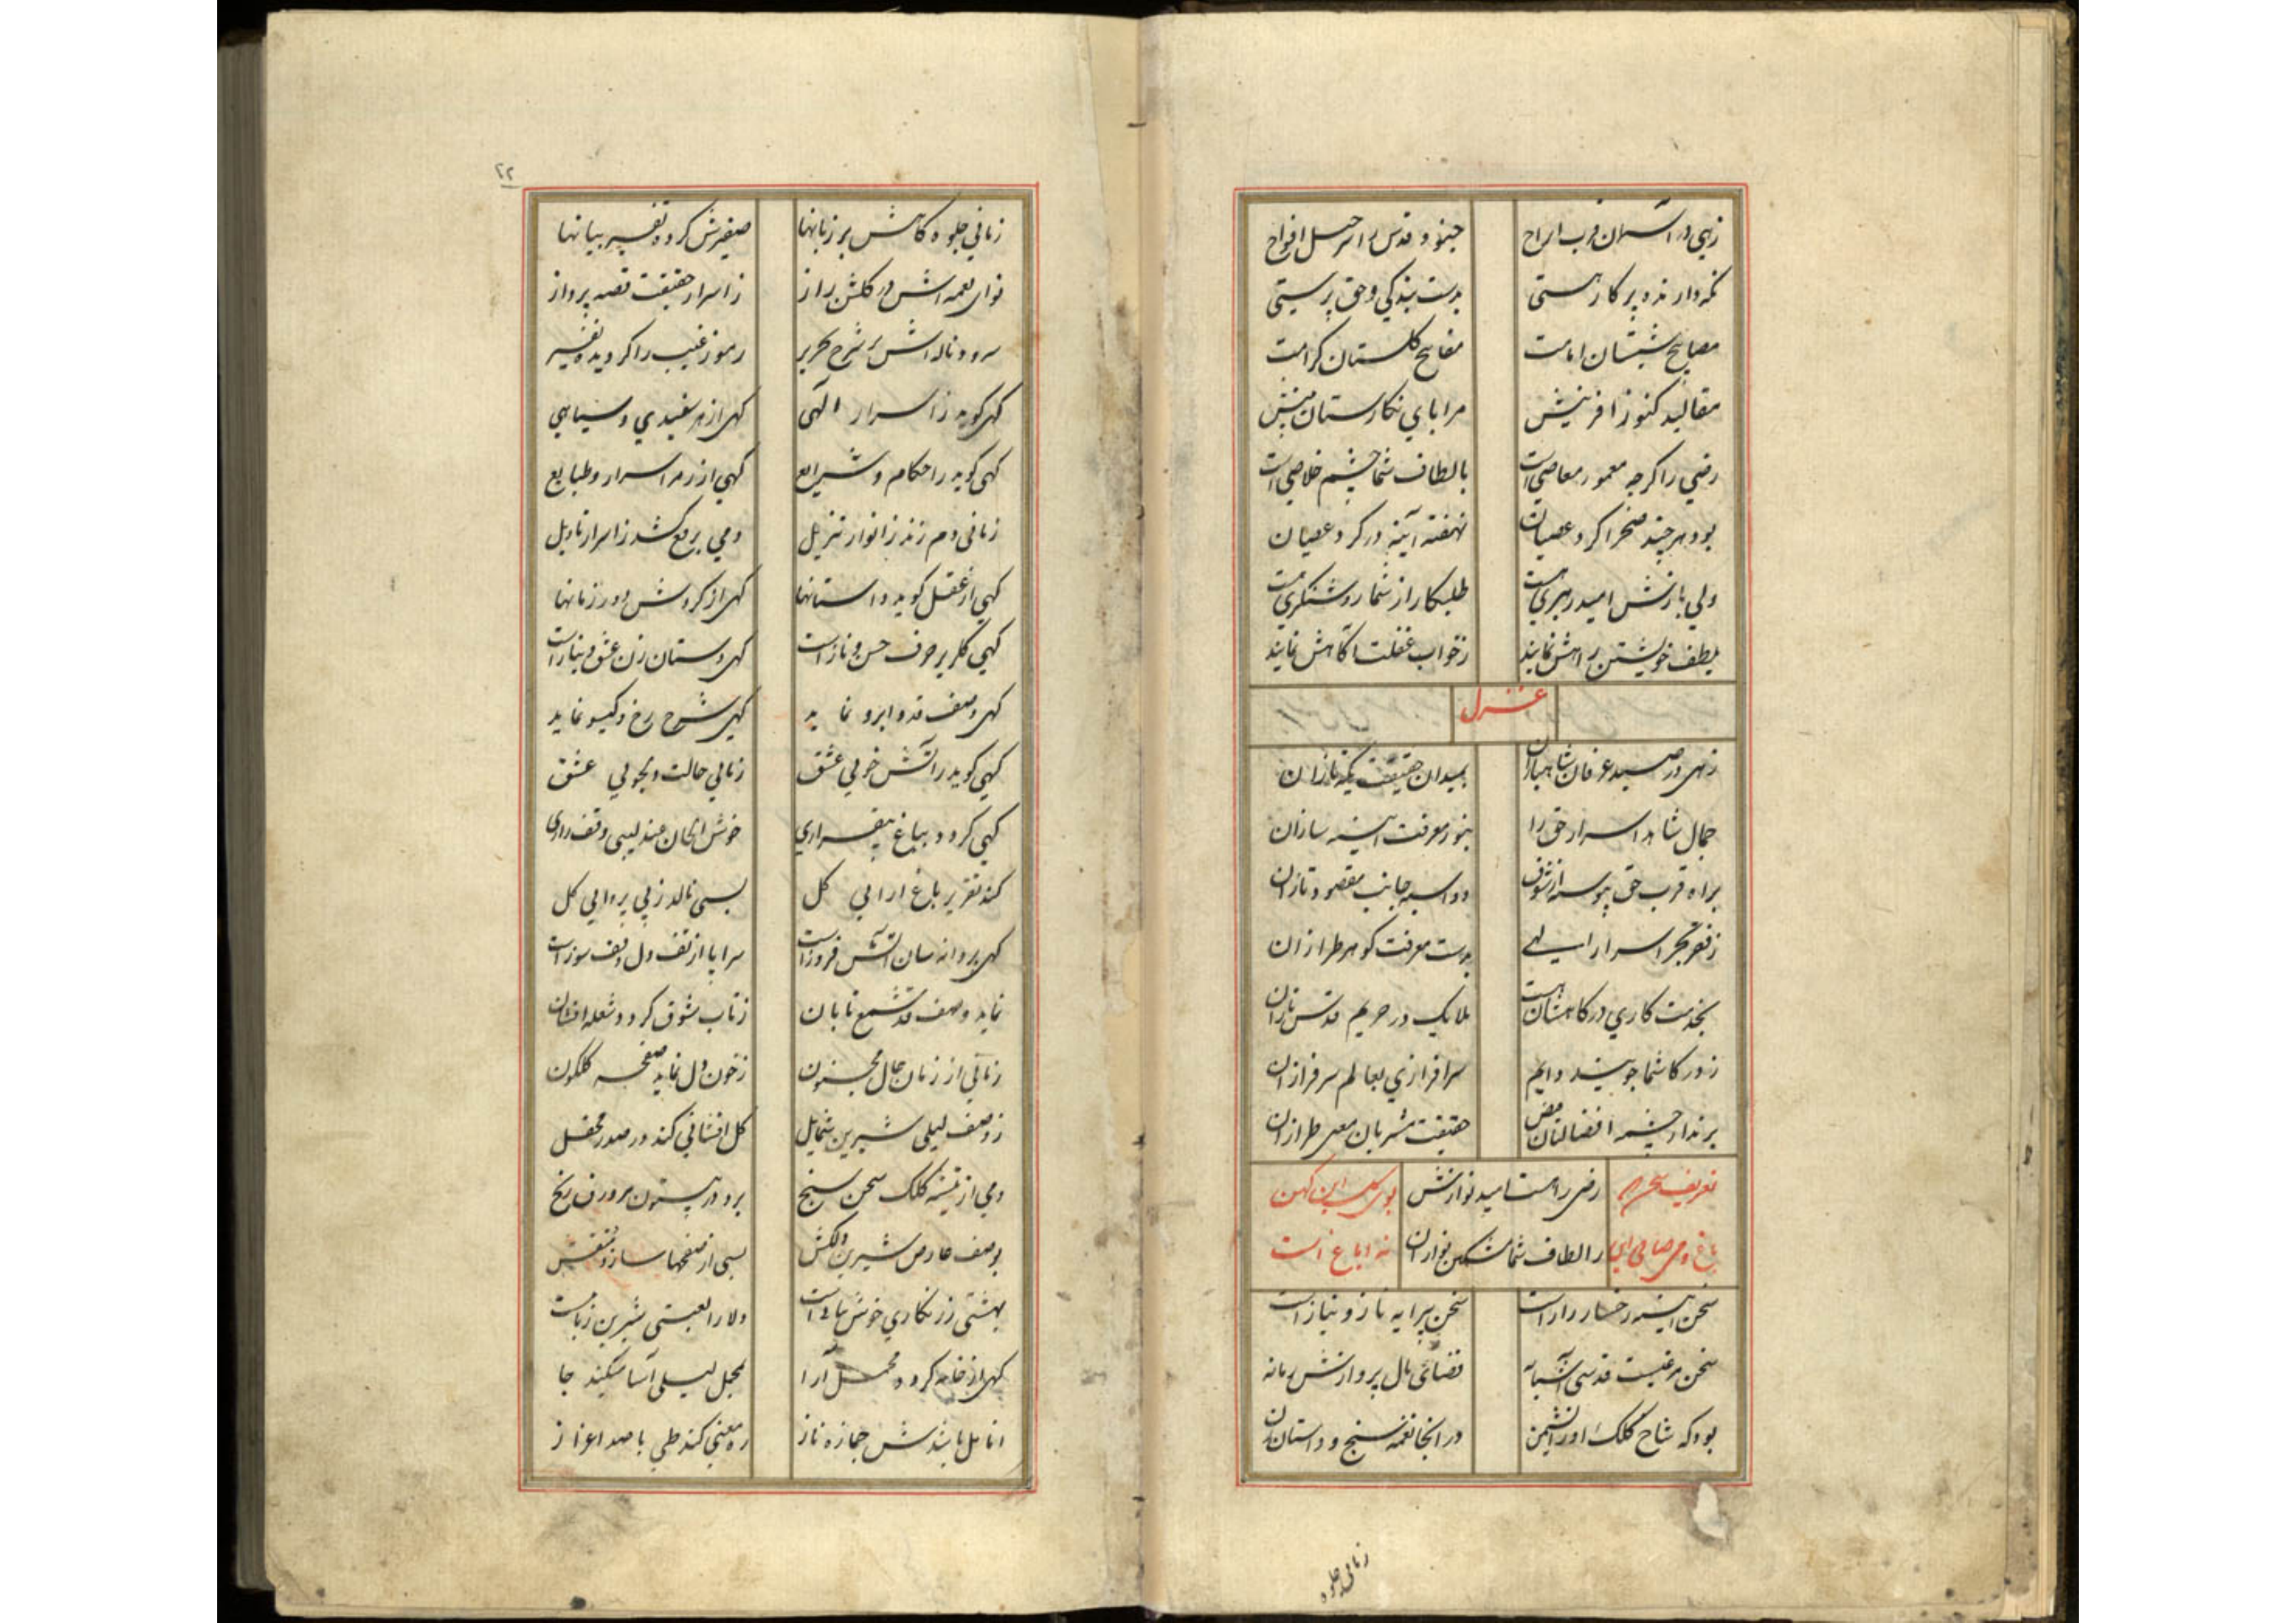 زهی در آسمان قرب ارواح جنود قدس را سرخیل افواج
نگهدارنده پرکار هستی بدست بندگی و حق پرستی
مصابیح شبستان امامت مفاتیح گلستان کرامت
مقالید کنوز افرینش مرایای نکارستان بینش
رضی را کرچه معمور معاصی است بالطاف شما چشم خلاصی است
بود هر چند صحرا کرد عصیان نهفته آینه در کرد عصیان
ولی بازش امید رهبری هست طلبکار از شما روشنکری هست
بلطف خویشتن راهش نمایند زخواب غفلت آکاهش نمایند
غزل
زهی در صید عرفان شاهبازان بمیدان حقیقت یکه تازان
جمال شاهد اسرار حق را بنور معرفت اینه سازان
براه قرب حق پیوسته از شوق دو اسبه جانب مقصود تازان
زقعر بحر اسرار الهی بدست معرفت کوهر طرازان
بخدمت کاری درکاهتان هست ملایک در حریم قدس نازان
ز درکاه شما جویند دایم سرافرازی بعالم سرفرازان
برند از چشمه افضالتان فیض حقیقت مشربان معنی طرازان
تعریف سخن رضی را هست امید نوازش این کهن
باغ و ز الطاف شما مسکین نوازان است
سخن اینه رخسار راز است سخن پیرایه ناز و نیاز است
سخن مرغیست قدسی آشیانه فضای بال پروازش زمانه
بود که شاخ کلک او را نشیمن در انجا نغمه سنج و داستان زن
زمانی جلوه
۲۲
زمانی جلوه کاهش بر زبانها صفیرش کرد و تفسیر بیانها
نوای نغمه اش در کلشن راز زاسرار حقیقت قصه پرداز
سرود ناله اش بر شرح تحریر رموز غیب را کردیده تفسیر
کهی کوید ز اسرار الهی کهی از هر سفیدی و سیاهی
کهی کوید ز احکام و شرایع کهی از رمز اسرار و طبایع
زمانی دم زند ز انوار تنزیل دمی برقع کشد ز اسرار تاویل
کهی از عقل کوید داستانها کهی از کردش دور زمانها
کهی کلریز حرف حسن و ناز است کهی دستان زن عشق و نیاز است
کهی وصف قد و ابرو نماید کهی شرح رخ و کیسو نماید
کهی کوید ز آتش خویی عشق زمانی حالت دلجویی عشق
کهی کردد بباغ بیقراری خوش الحان عندلیبی وقف زاری
کند تقریر باغ ارایی کل بسی نالد ز بی پروایی کل
کهی پروانه سان آتش فروز است سراپا از تف دل وقف سوز است
نماید وصف قد شمع تابان زتاب شوق کردد شعله افشان
زمانی از زبان حال مجنون زخون دل نماید صفحه کلکون
زوصف لیلی شیرین شمایل کل افشانی کند در صدر محفل
دمی از تیشه کلک سخن سنج برد در بیستون هر ورق رنج
بوصف عارض شیرین دلکش بسی از صفحها سازد منقش
بهشتی زرنکاری خوش بیان است دلارا لعبتی شیرین زبان است
کهی از خامه کردد محمل آرا بمحمل لیلی آسا میکند جا
انامل باشدش جمازه ناز ره معنی کند طی با صد اعزاز